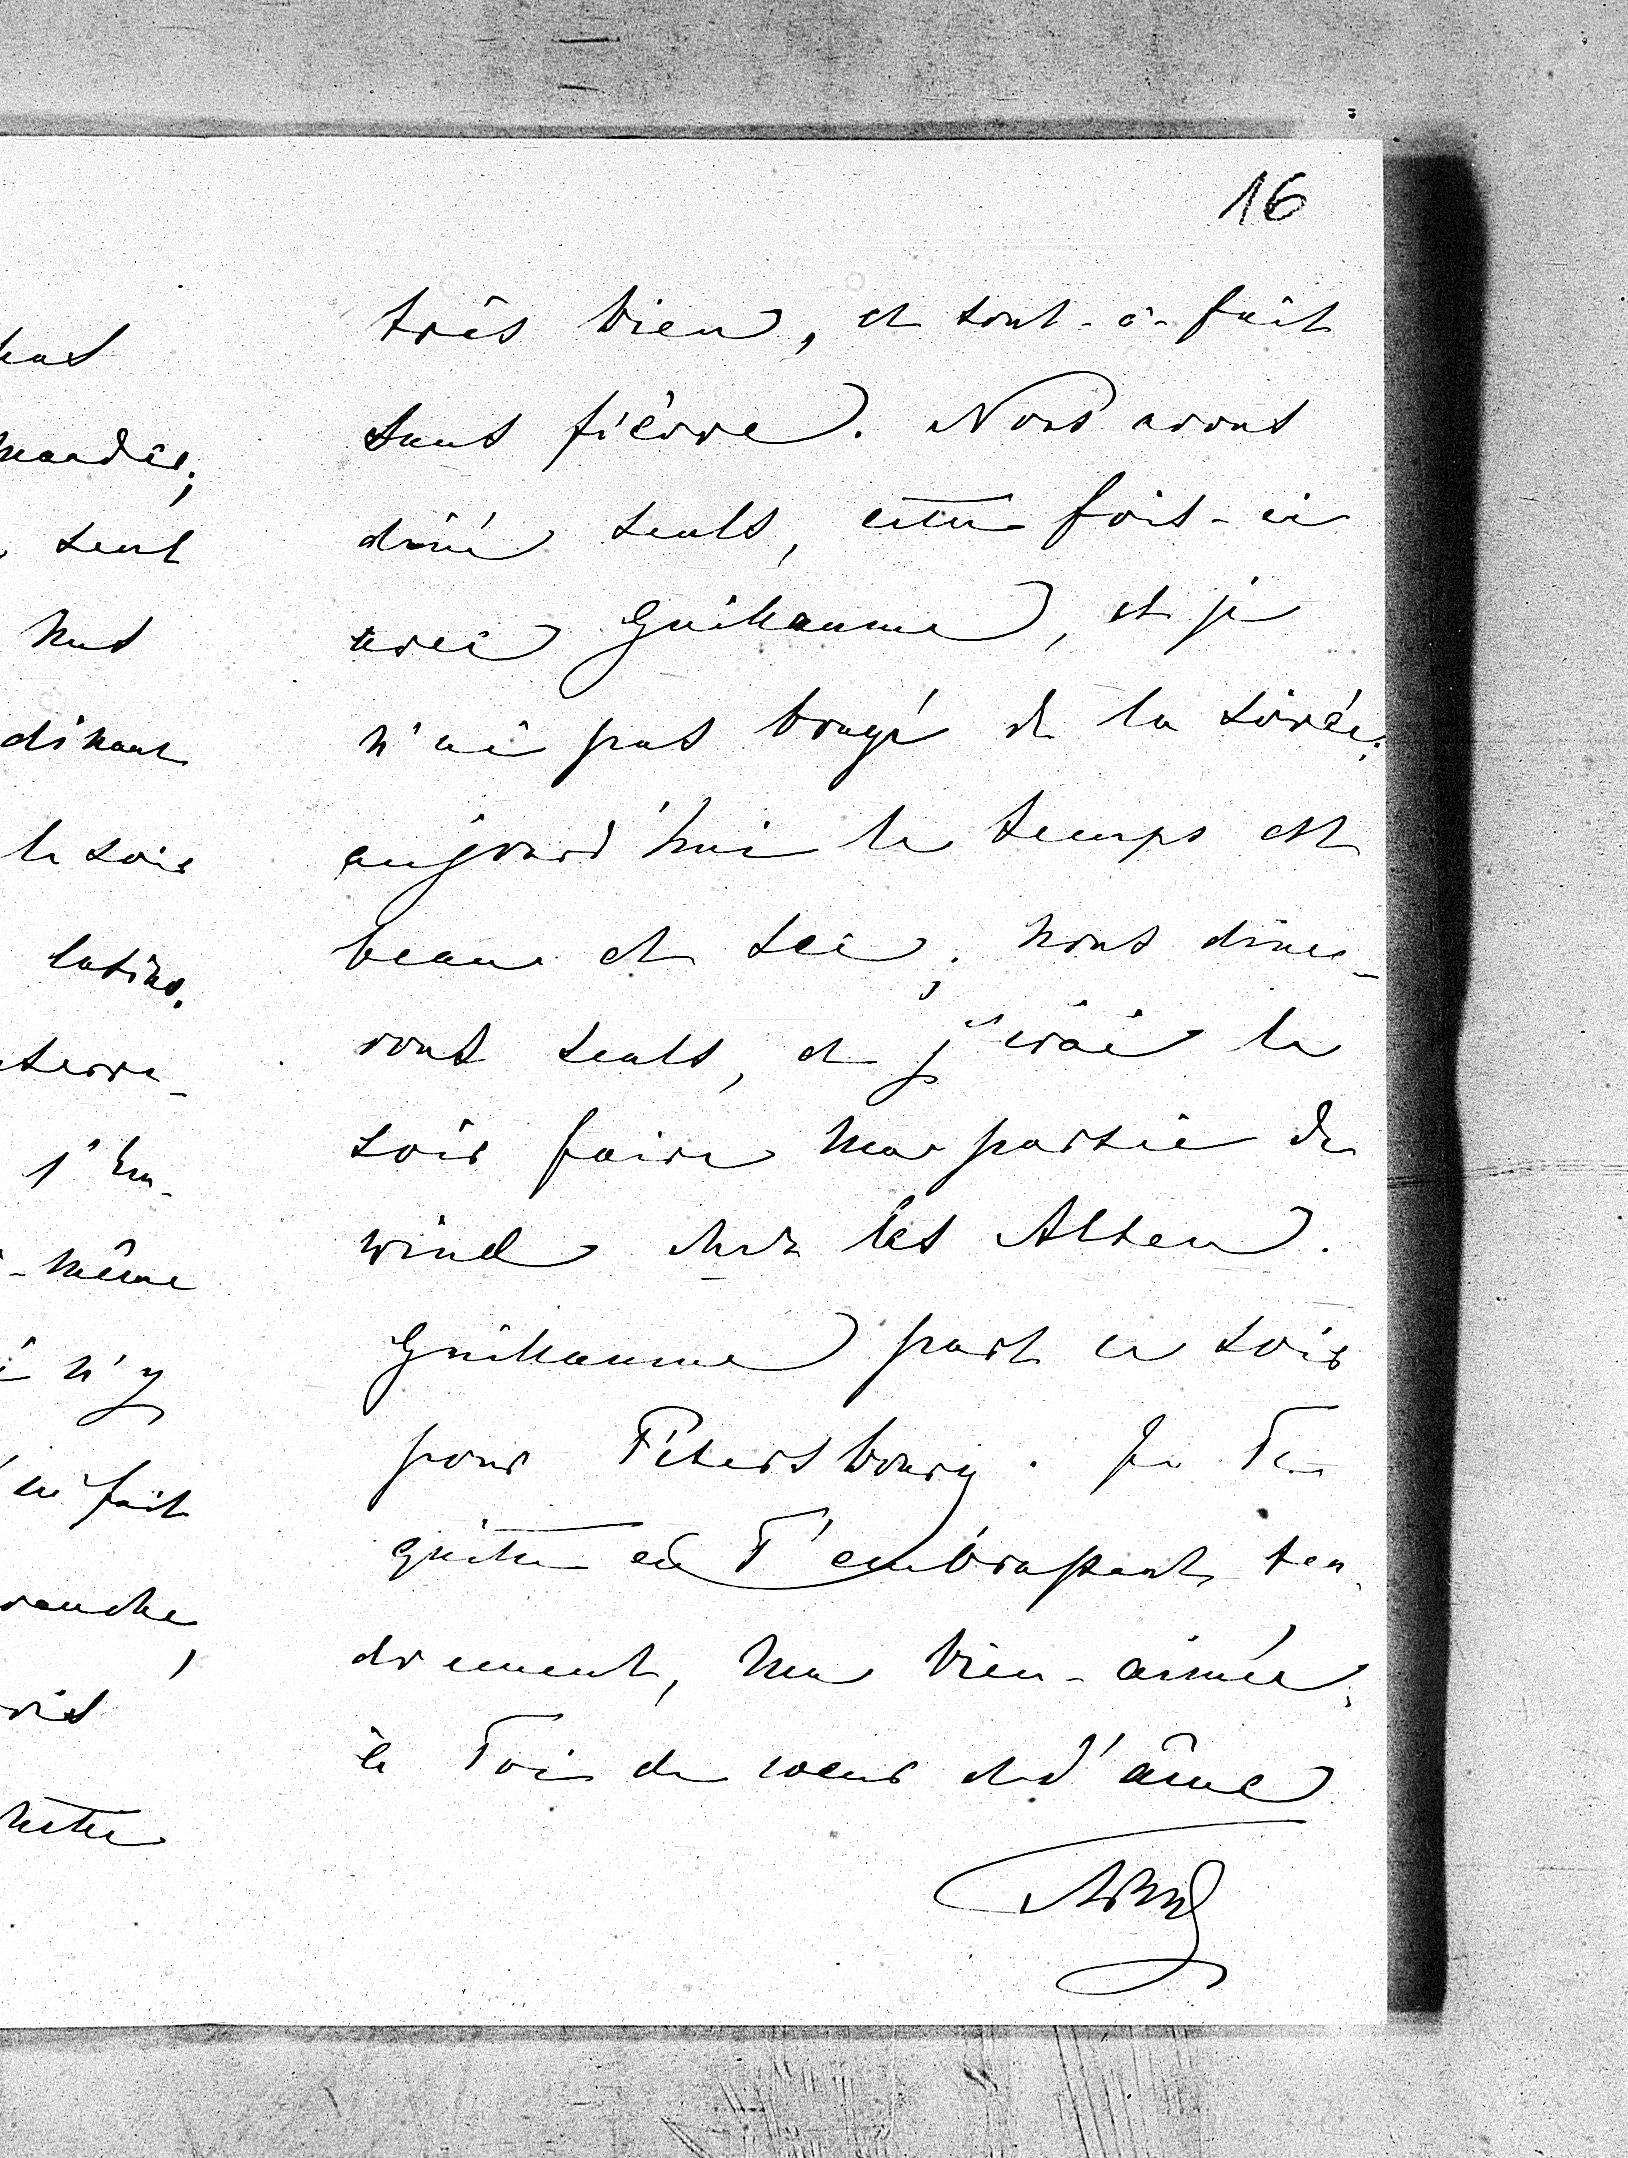 16
très bien, et tout-à-fait
sans fièvre. Nous avons
diné seuls, cette fois-ci
avec Guillaume, et je
n'ai pas bougé de la soirée;
aujourd'hui le temps est
beau et sec; nous dine-
rons seuls, et j'irai le
soir faire ma partie de
chez les Alten.
Guillaume part ce soir
pour Pétersbourg. Je Te
quitte en T'embrassant ten-
drement, ma bien-aimée;
à Toi de coeur et d'âme